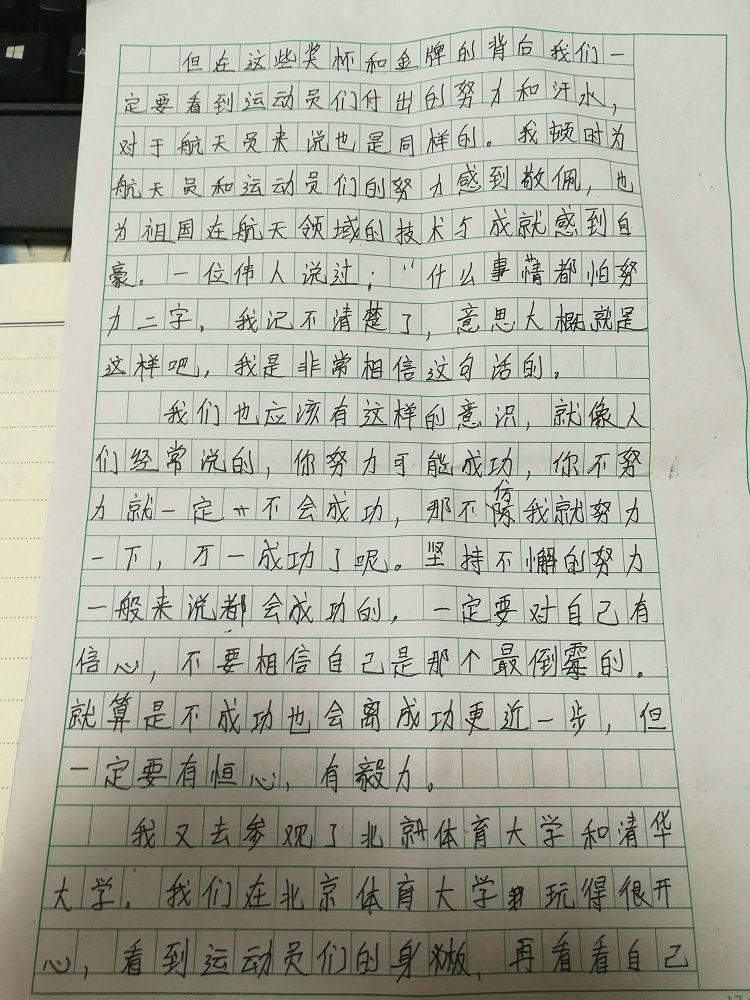 但在这些奖杯和金牌的背后我们一
定要看到运动员们付出的努力和汗水，
对于航天员来说也是同样的。我顿时为
航天员和运动员们的努力感到敬佩，也
为祖国在航天领域的技术与成就感到自
豪。一位伟人说过：“什么事情都怕努
力二字，我记不清楚了，意思大概就是
这样吧，我是非常相信这句话的。
我们也应该有这样的意识，就像人
们经常说的，你努力可能成功，你不努
力就一定不会成功，那不仿我就努力
一下，万一成功了呢。坚持不懈的努力
一般来说都会成功的，一定要对自己有
信心，不要相信自己是那个最倒霉的。
就算是不成功也会离成功更近一步，但
一定要有恒心，有毅力。
我又去参观了北京体育大学和清华
大学。我们在北京体育大学玩得很开
心，看到运动员们的身板，再看看自己